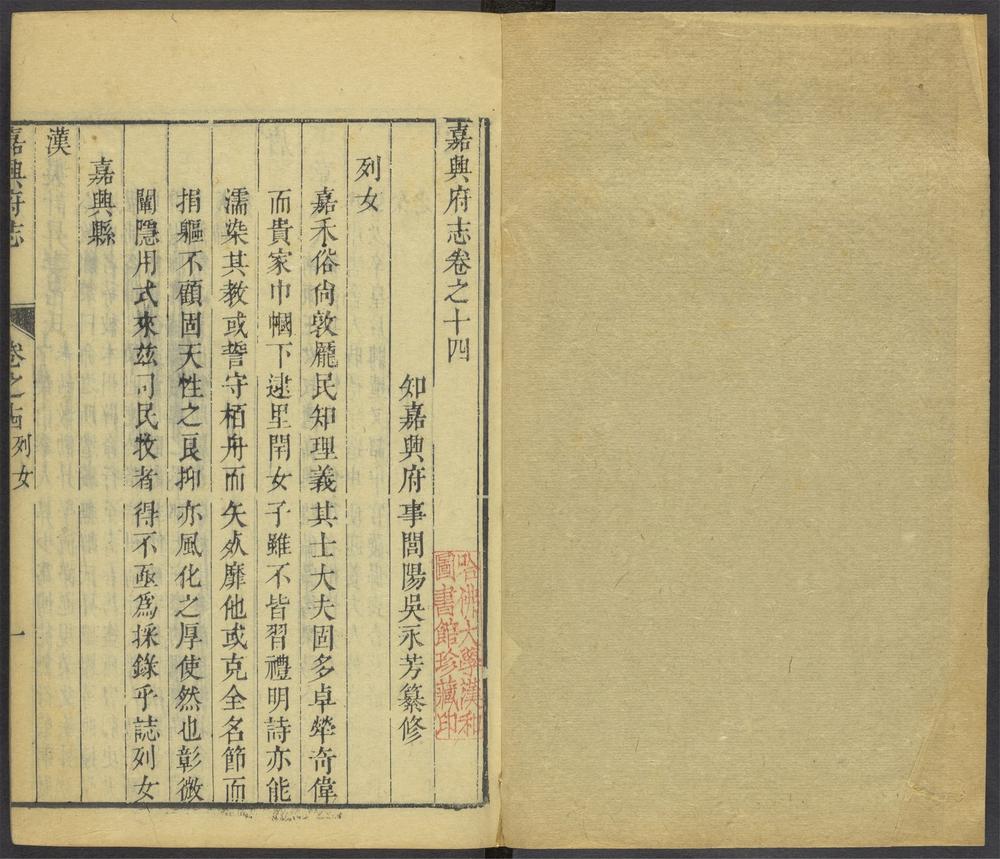 嘉興府志卷之十四
知嘉興府事閭陽吳永芳纂修
列女
嘉禾俗尙敦龐民知理義其士大夫固多卓犖奇偉
而貴家巾幗下逮里閈女子雖不皆習禮明詩亦能
濡染其教或誓守栢舟而矢𣦸靡他或克全名節而
捐軀不顧固天性之良抑亦風化之厚使然也彰微
闡隱用式來茲司民牧者得不亟爲採錄乎誌列女
嘉興縣
漢
嘉興府志
卷之十四列女
一
哈佛大學漢和
圖書館珍藏印